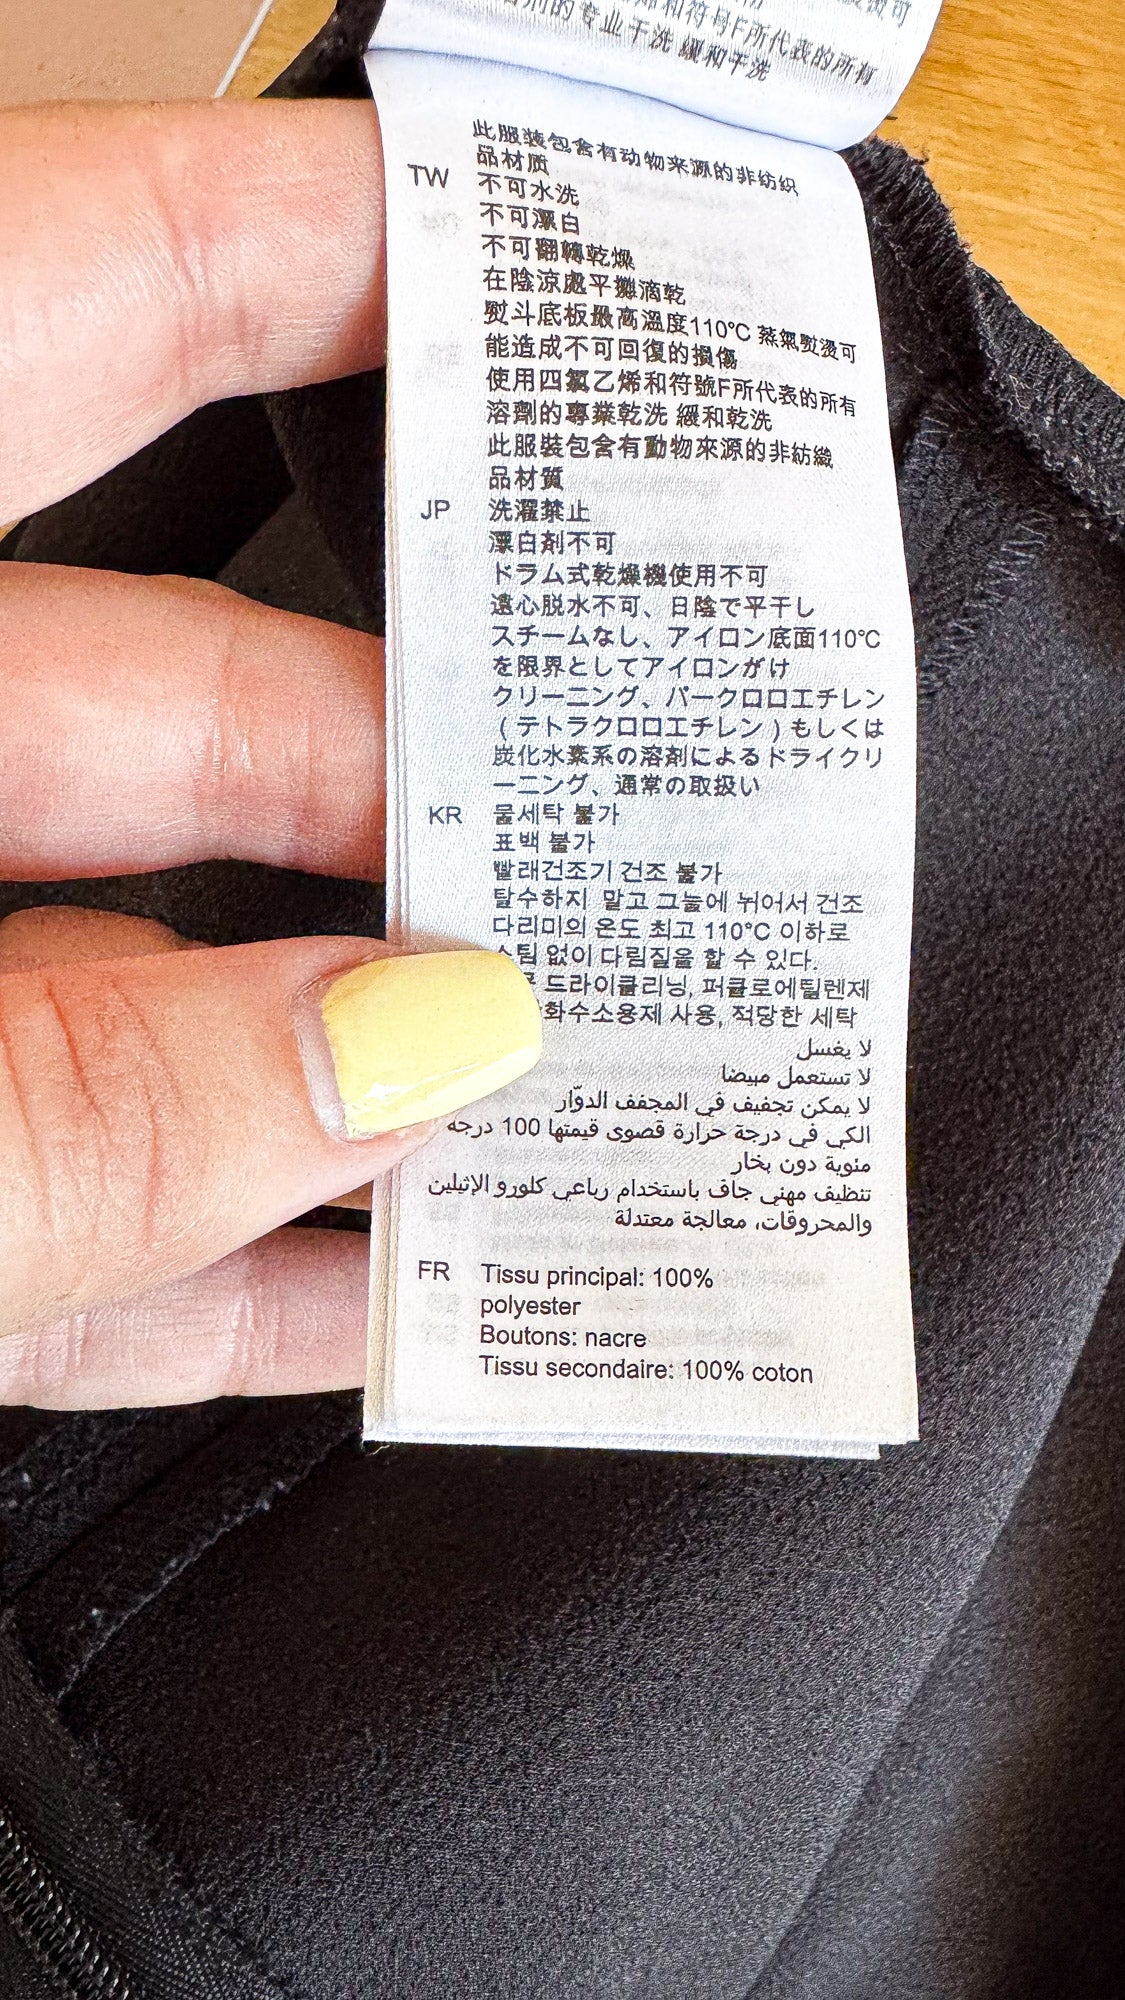 剂的专业干洗 緩和干洗
和符号F所代表的所有
此服装包含有动物来源的非纺织
品材质
TW 不可水洗
不可漂白
不可翻轉乾燥
在陰涼處平攤滴乾
熨斗底板最高溫度110℃ 蒸氣熨燙可
能造成不可回復的損傷
使用四氯乙烯和符號F所代表的所有
溶劑的專業乾洗 緩和乾洗
此服裝包含有動物來源的非紡織
品材質
JP 洗濯禁止
漂白剤不可
ドラム式乾燥機使用不可
遠心脱水不可、日陰で平干し
スチームなし、アイロン底面110℃
を限界としてアイロンがけ
クリーニング、パークロロエチレン
(テトラクロロエチレン)もしくは
炭化水素系の溶剤によるドライクリ
ーニング、通常の取扱い
KR 물세탁 불가
표백 불가
빨래건조기 건조 불가
탈수하지 말고 그늘에 뉘어서 건조
다리미의 온도 최고 110°C 이하로
스팀 없이 다림질을 할 수 있다.
드라이클리닝, 퍼클로에틸렌제
화수소용제 사용, 적당한 세탁
لا يغسل
لا تستعمل مبيضا
لا يمكن تجفيف في المجفف الدوّار
الكي في درجة حرارة قصوى قيمتها 100 درجة
مئوية دون بخار
تنظيف مهني جاف باستخدام رباعي كلورو الإثيلين
والمحروقات، معالجة معتدلة
FR Tissu principal: 100%
polyester
Boutons: nacre
Tissu secondaire: 100% coton